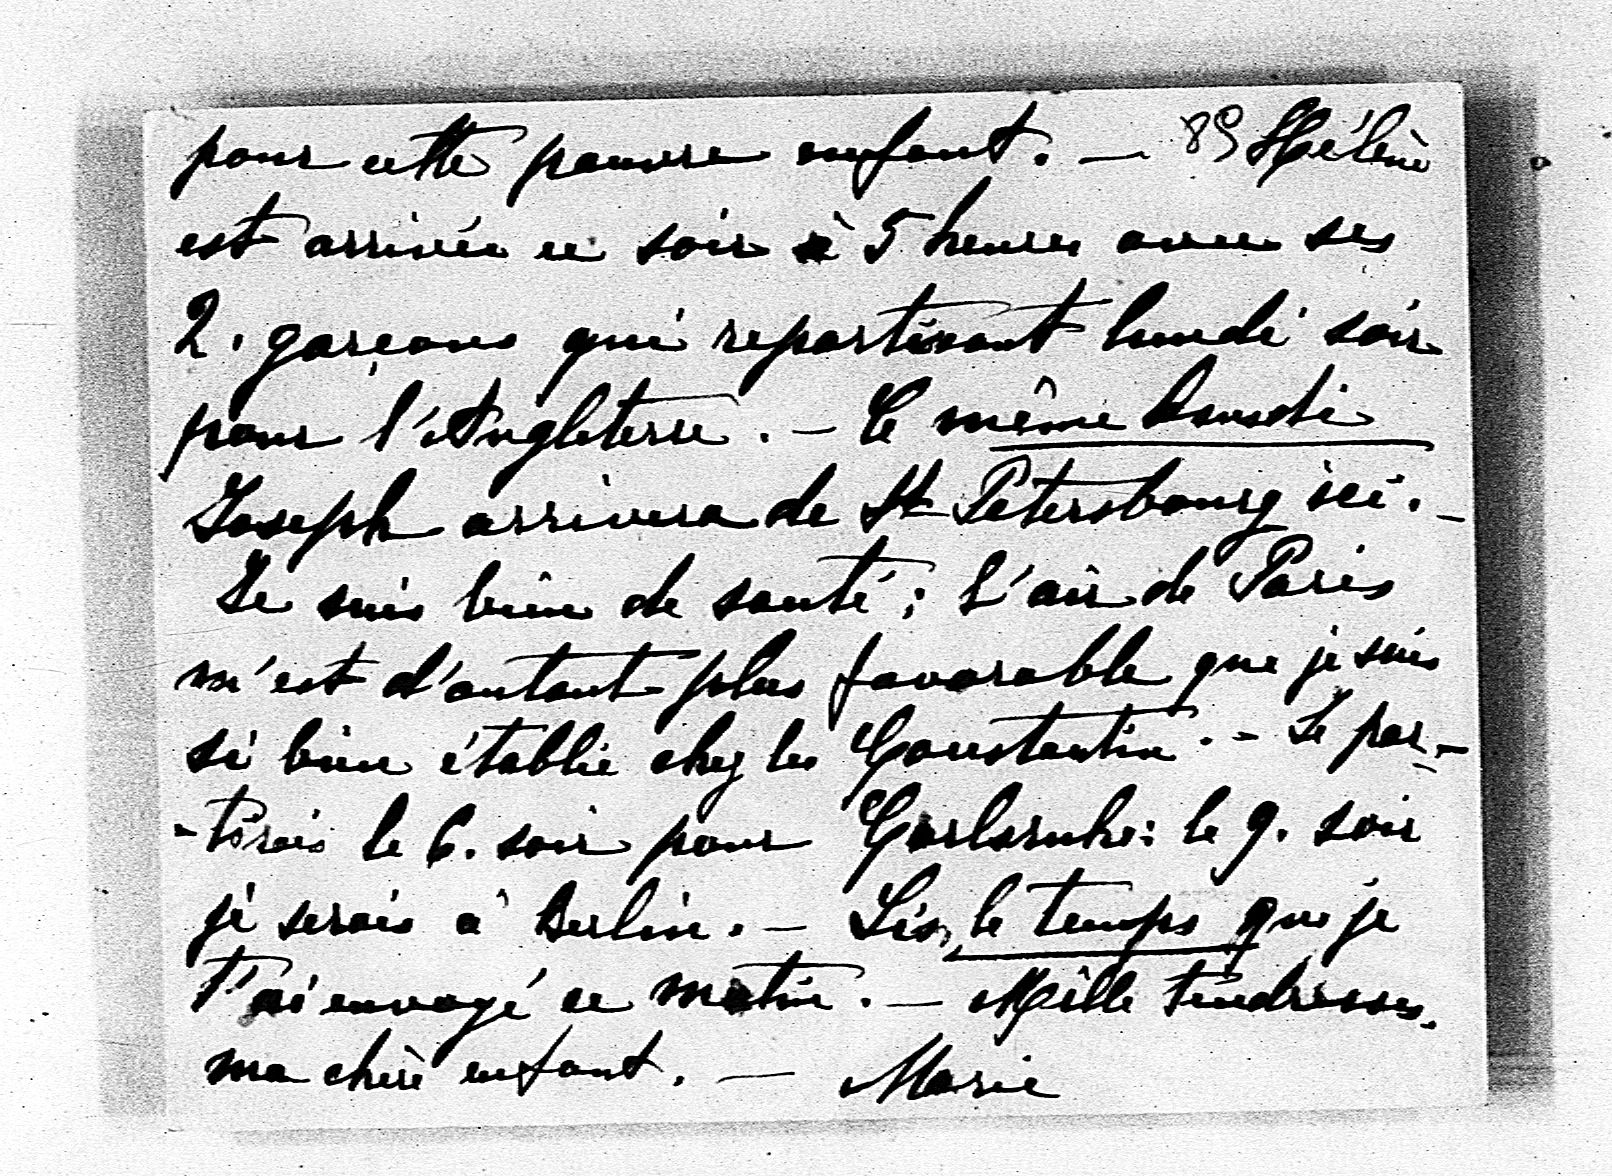 pour cette pauvre enfant. — 89 Hélène
est arrivée ce soir à 5 heures avec ses
2. garçons qui repartiront lundi soir
pour l'Angleterre. — Ce même lundi
Joseph arrivera de St Petersbourg ici. —
Je suis bien de santé; l'air de Paris
m'est d'autant plus favorable que je suis
si bien établie chez les Constantin. — Je par-
-tirais le 6. soir pour Carlsruhe: le 9. soir
je serais à Berlin. — Lis, le temps que je
t'ai envoyé ce matin. — Mille tendresses,
ma chère enfant. — Marie